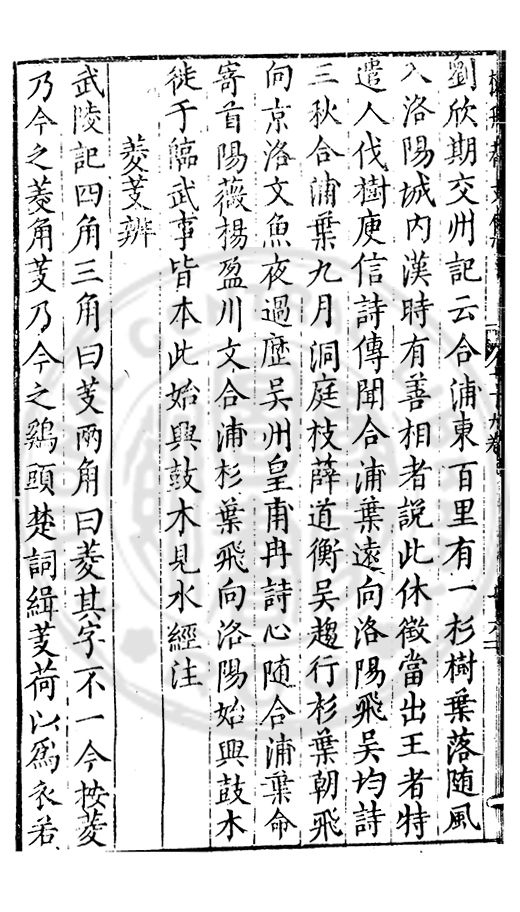 劉欣期交州記云合浦東百里有一杉樹葉落随風
入洛陽城内漢時有善相者說此休徵當出王者特
遣人伐樹庾信詩傳聞合浦葉逺向洛陽飛吴均詩
三秋合浦葉九月洞庭枝薛道衡吴趨行杉葉朝飛
向京洛文魚夜過歴吴州皇甫冉詩心随合浦葉命
寄首陽薇楊盈川文合浦杉葉飛向洛陽始興鼓木
徙于臨武事皆本此始興鼓木見水經注
菱芰辨
武陵記四角三角曰芰兩角曰菱其字不一今按菱
乃今之菱角芰乃今之鷄頭楚詞緝芰荷以爲衣若